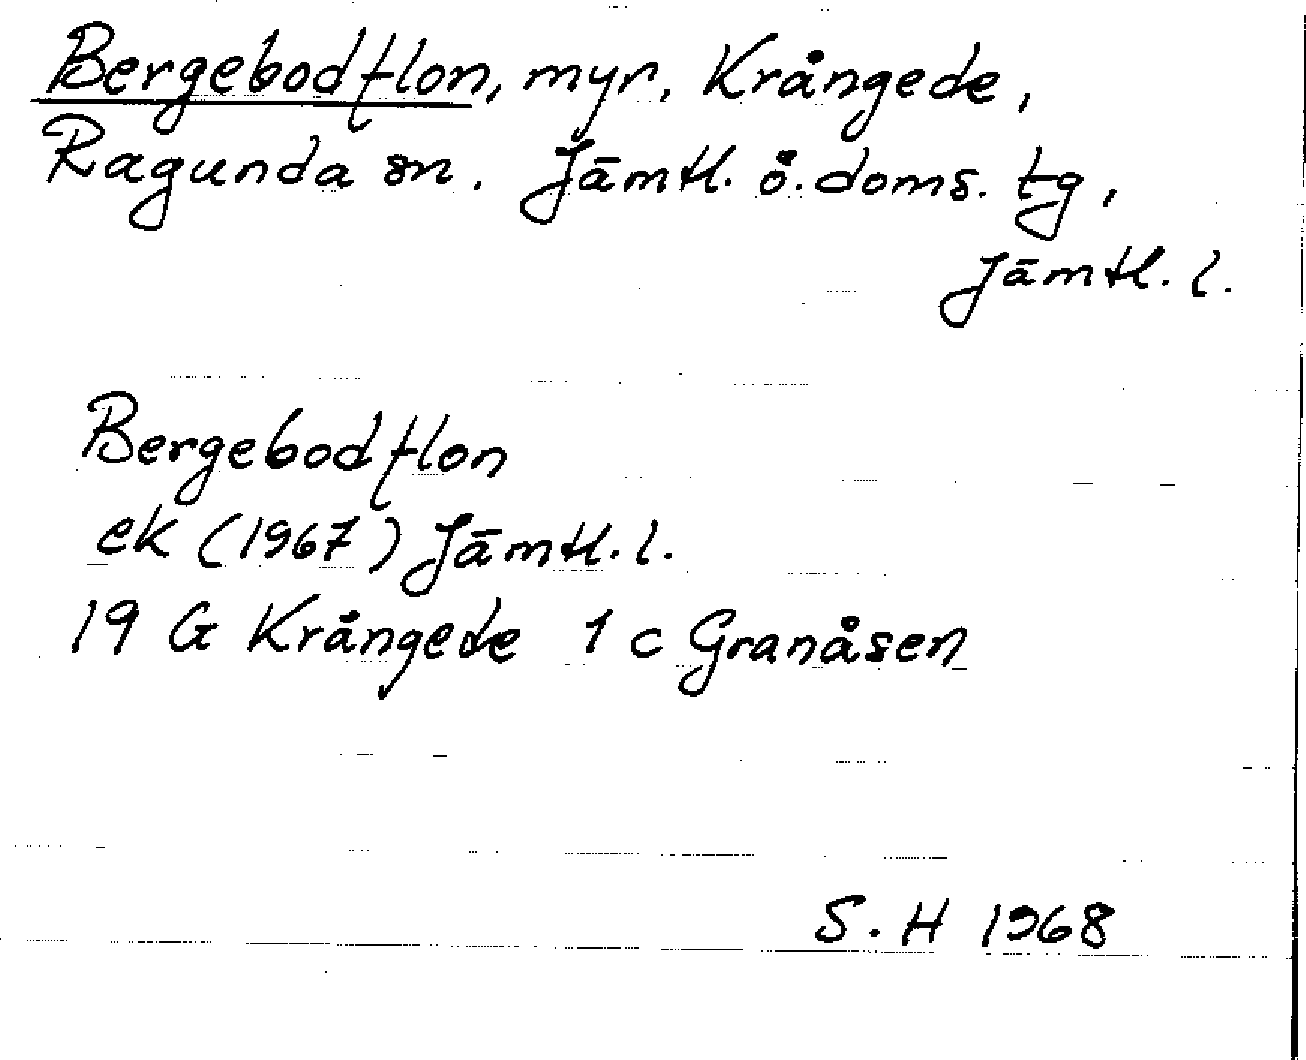 Bergebodflon, myr, Krångede,
Ragunda sn. Jämtl. ö. doms. tg,
Jämtl. l.
Bergebodflon
ek (1967) Jämtl. l.
19 G Krångede 1 c Granåsen
S. H 1968